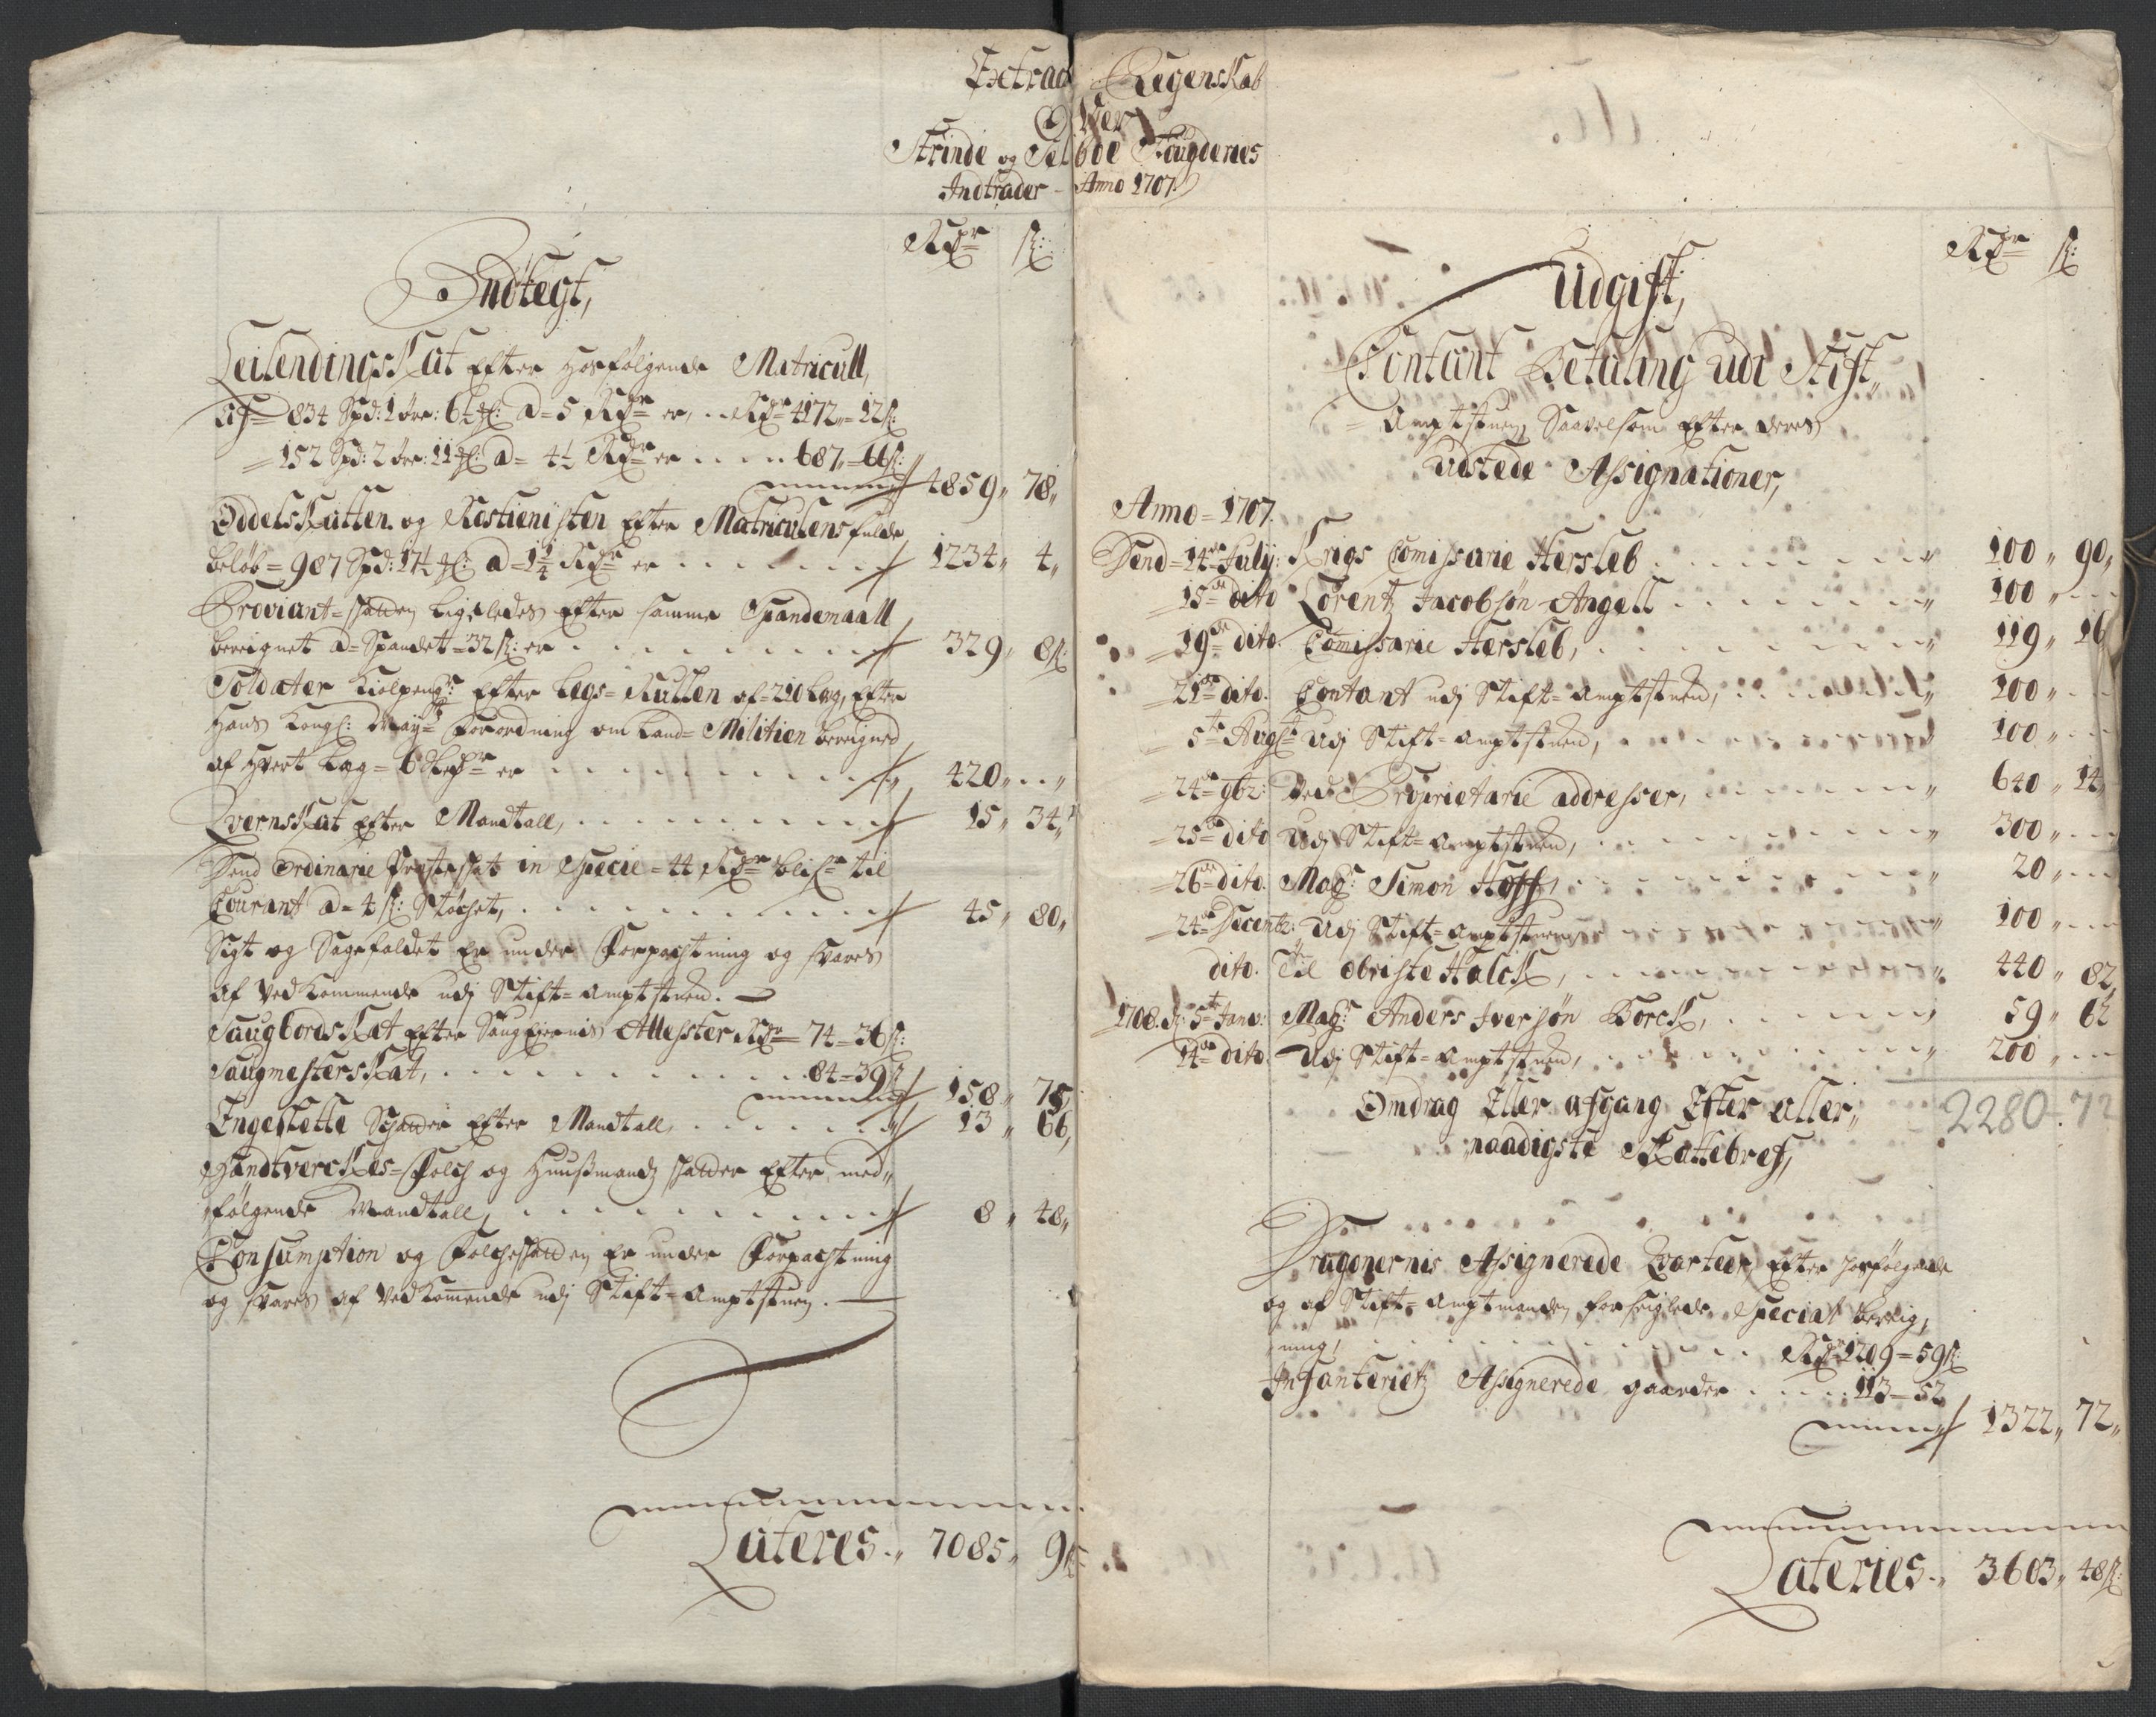 Extract Regenskab
Over
Strinde og Selboe Fougderies
Indtrader - Anno 1707
Rdr ß:
Indtegt,
LeilendingsSkat efter hosfølgende Matricull,
Af 834 Spd: 1 øre: 6½ ℔: a = 5 Rdr er, .. Rdr 4172 = 12ß:
= 152 Spd: 2 øre: 11 ℔: a = 4½ Rdr er .... 687 = 66ß:
4859,, 78,,
OddelsSkatten og Rostienisten efter Matriculens fulde
beløb = 987 Spd: 17½ ℔: a = 1¼ Rdr er . . . . 1234,, 4,,
Proviant-skatten ligeledes efter samme Spandemaall
bereignet a Spandet = 32 ß: er . . . . 329,, 8ß:
Soldater Hiolpengr: efter Legs-Rullen af = 210 Læg, efter
Hans Kongl: Mayts: Forordning om Land-Militien bereigned
af Hvert Læg = 6 Rixdr er . . . . 420,, . . ,,
QvernsKat efter Mandtall, . . . . 15,, 34,,
Dend Ordinarie Prosteskat in Specie = 44 Rdr blifr til
Courant a = 4 ß: Støchet, . . . . 45,, 80,,
Sigt og Sagefaldet er under Forpachtning og svares
af Vedkommende udj Stift-Amptstuen.
SaugbordsKat efter Saugeiernis Attester Rdr 74 = 36 ß:
SaugmestersKat, . . . . 84 = 39 ß
158,, 75,,
Engeslette Schatter efter Mandtall . . . . 13,, 66,,
HandtverckKes-Folch og Huusmandz skatter efter med-
følgende Mandtall, . . . . 8,, 48,,
Consumption og Folcheskatten er under Forpachtning
og svares af Vedkomende udj Stift-Amptstuen.
Lateres ., 7085,, 9ß
Rdr ß:
Udgift,
Contant Betaling udi Stift-
Amptstuen, Saavelsom efter deres
Udstede Assignationer,
Anno = 1707.
Dend = 14de July: Krigs Comissarie Hersleb . . . . 100,, 90,,
= 15de dito Lorentz Jacobsøn Angell . . . . 100,, ...
= 19de dito. Comissarie Hersleb, . . . . 119,, 16
= 21de dito. Contant udj Stift-Amptstuen, . . . . 100,, ...
= 5te Augst: Udj Stift-Amptstuen, . . . . 100,, ...
= 24de 9br: Ved Proprietarie addresser, . . . . 640,, 14,,
= 25de dito Udj Stift-Amptstuen, . . . . 300,, ...
= 26de dito. Magr: Simon Hoff, . . . . 20,, ...
= 24de Decembr: Udj Stift-Amptstuen . . . . 100,, ...
dito. Til Obriste Halck, . . . . 440,, 82,,
1708. d: 5te Janv: Magr: Anders Iversøn Borck, . . . . 59,, 62
14de dito. Udj Stift-Amptstuen, . . . . 200,, ...
2280. 72
Omdrag Eller afgang Efter aller-
naadigste Skattebref,
Dragonernis Assignerede Qvarteer, efter hosfølgende
og af Stift-Amptmanden forseiglede Special bereig-
ning, . . . . Rdr 1209 = 59ß:
Infanterietz Assignerede gaarder . . . . 113 = 52
1322,, 72,,
Lateries ., 3603,, 48ß: